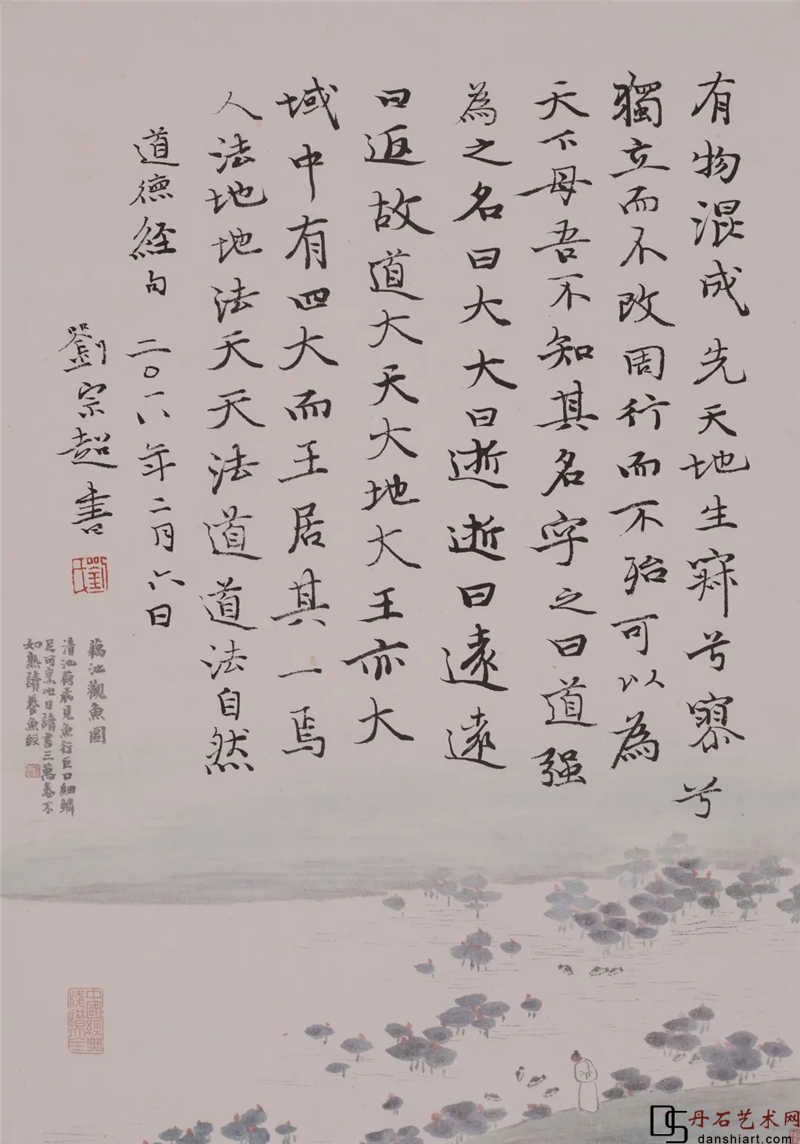 有物混成先天地生寂兮寥兮
獨立而不改周行而不殆可以為
天下母吾不知其名字之曰道强
為之名曰大大曰逝逝曰遠遠
曰返故道大天大地大王亦大
域中有四大而王居其一焉
人法地地法天天法道道法自然
道德經句 二〇一八年二月六日
劉宗超書
藕池觀魚圖
清池荷葉見魚行巨口細鱗
足可烹他日讀書三萬卷不
如熟讀養魚經
丹石艺术网
danshiart.com